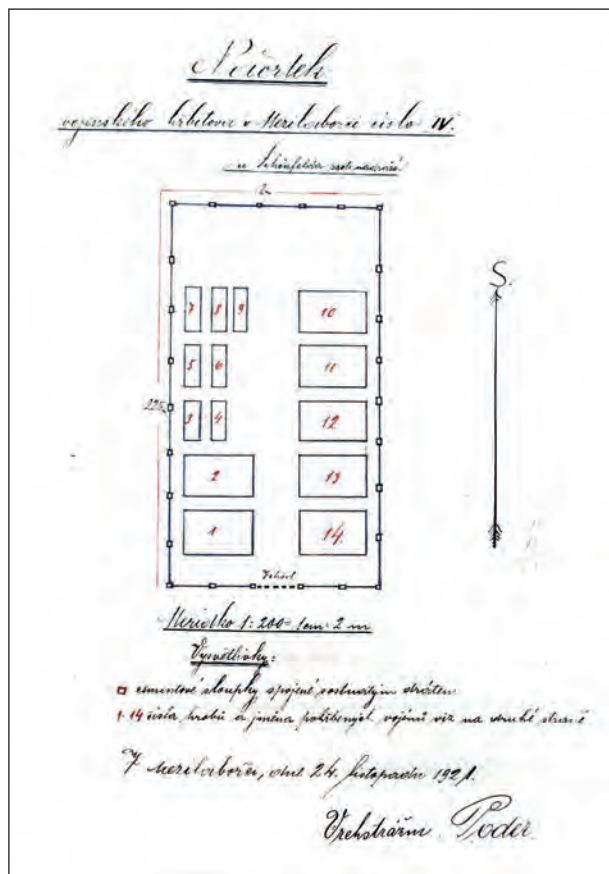 Náčrtek
vojenského hřbitova v Mezilaborci číslo IV.
u Schönfelda
12m
S.
7 8 9 10
5 6 11
22m
3 4 12
2 13
1 14
Vchod
Meřídko 1:200 = 1cm 2 m
Vysvětlivky:
cementové sloupky spojené ostnatým drátem
1-14 čísla hrobů a jména pohřbených vojínů viz na druhé straně
V Mezilaborci, dne 24. listopadu 1921.
Vrchstrážm. Poder.